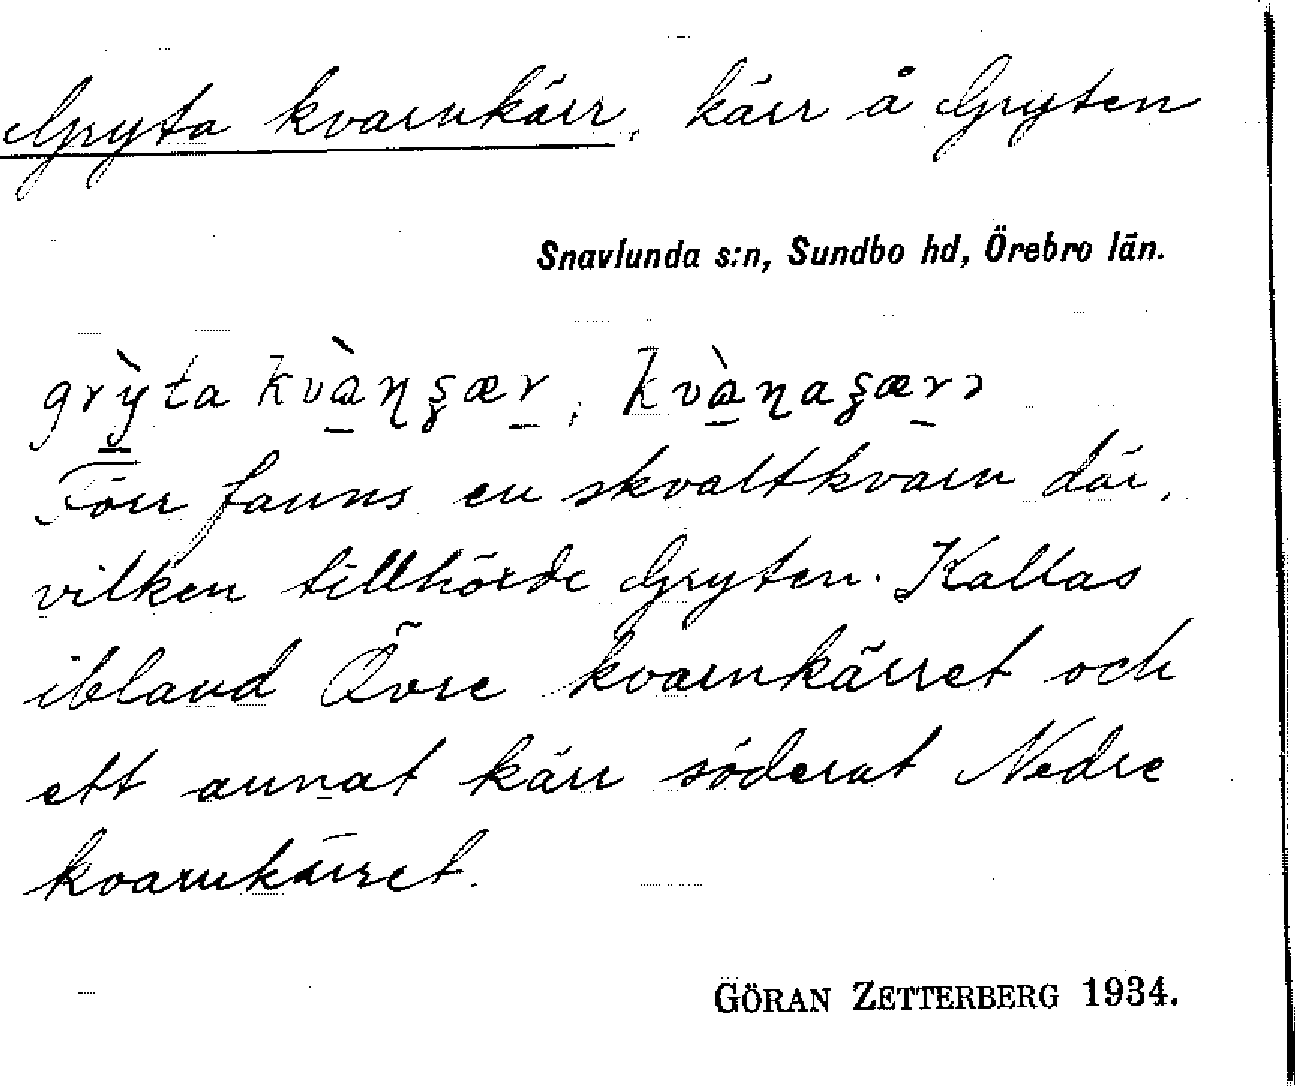 Gryta kvarnkärr, kärr å Gryten
Snavlunda s:n, Sundbo hd, Örebro län.
grỳta kvàɳʂær, kvàɳaʂærɔ
Förr fanns en skvaltkvarn där,
vilken tillhörde Gryten. Kallas
ibland Övre kvarnkärret och
ett annat kärr söderut Nedre
kvarnkärret.
GÖRAN ZETTERBERG 1934.